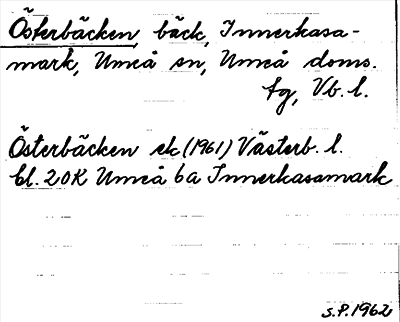 Österbäcken, bäck, Innerkasa-
mark, Umeå sn, Umeå doms.
tg, Vb. l.
Österbäcken ek (1961) Västerb. l.
bl. 20K Umeå 6a Innerkasamark
S.P. 1962